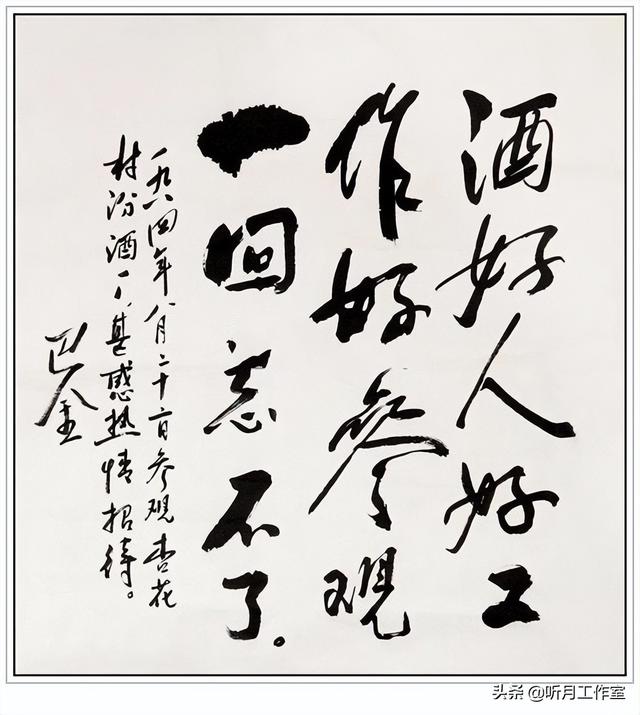 酒好人好工
作好参观
一回忘不了。
一九八四年八月二十一日参观杏花
村汾酒厂,甚感热情招待。
巴金
头条 @听月工作室